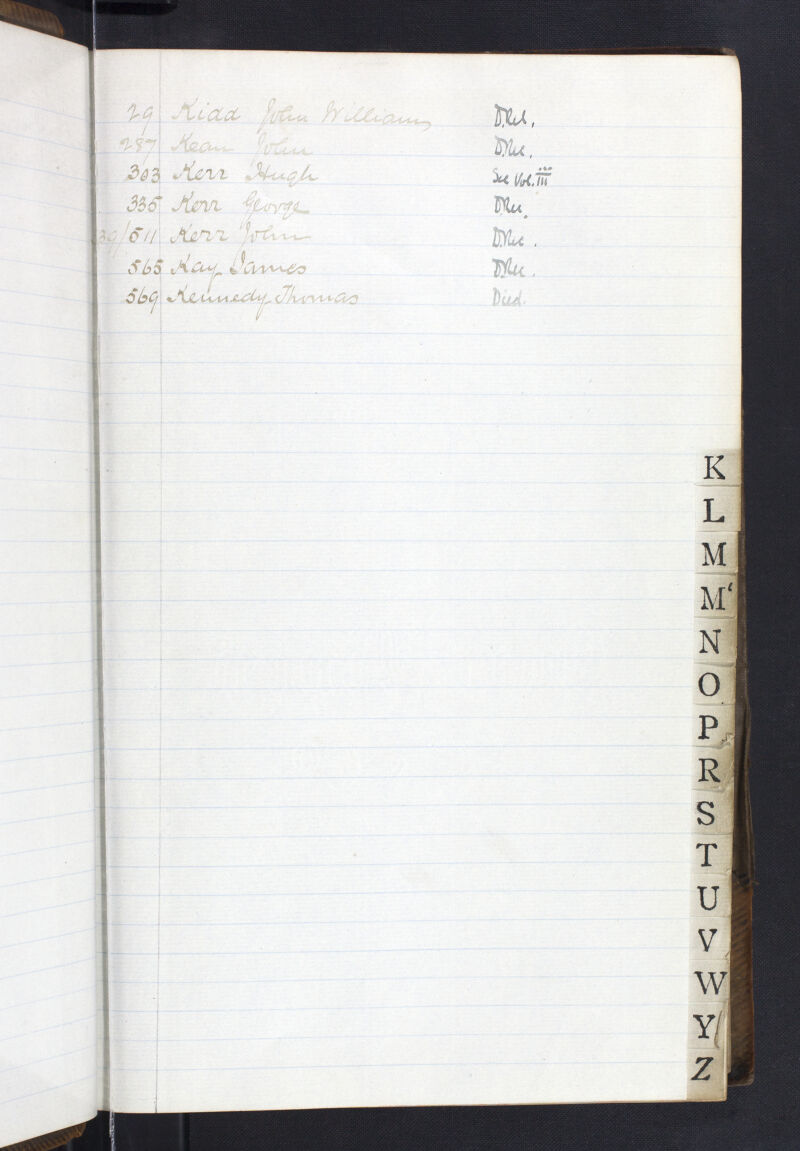 29 Kidd John Williams D. Rel.
287 Kean John D. Rec.
303 Kerr Hugh See Vol. III
335 Kerr George D. Rec.
39/511 Kerr John D. Rec.
565 Kay James D. Rec.
569 Kennedy Thomas Died.
K
L
M
M'
N
O
P
R
S
T
U
V
W
Y
Z